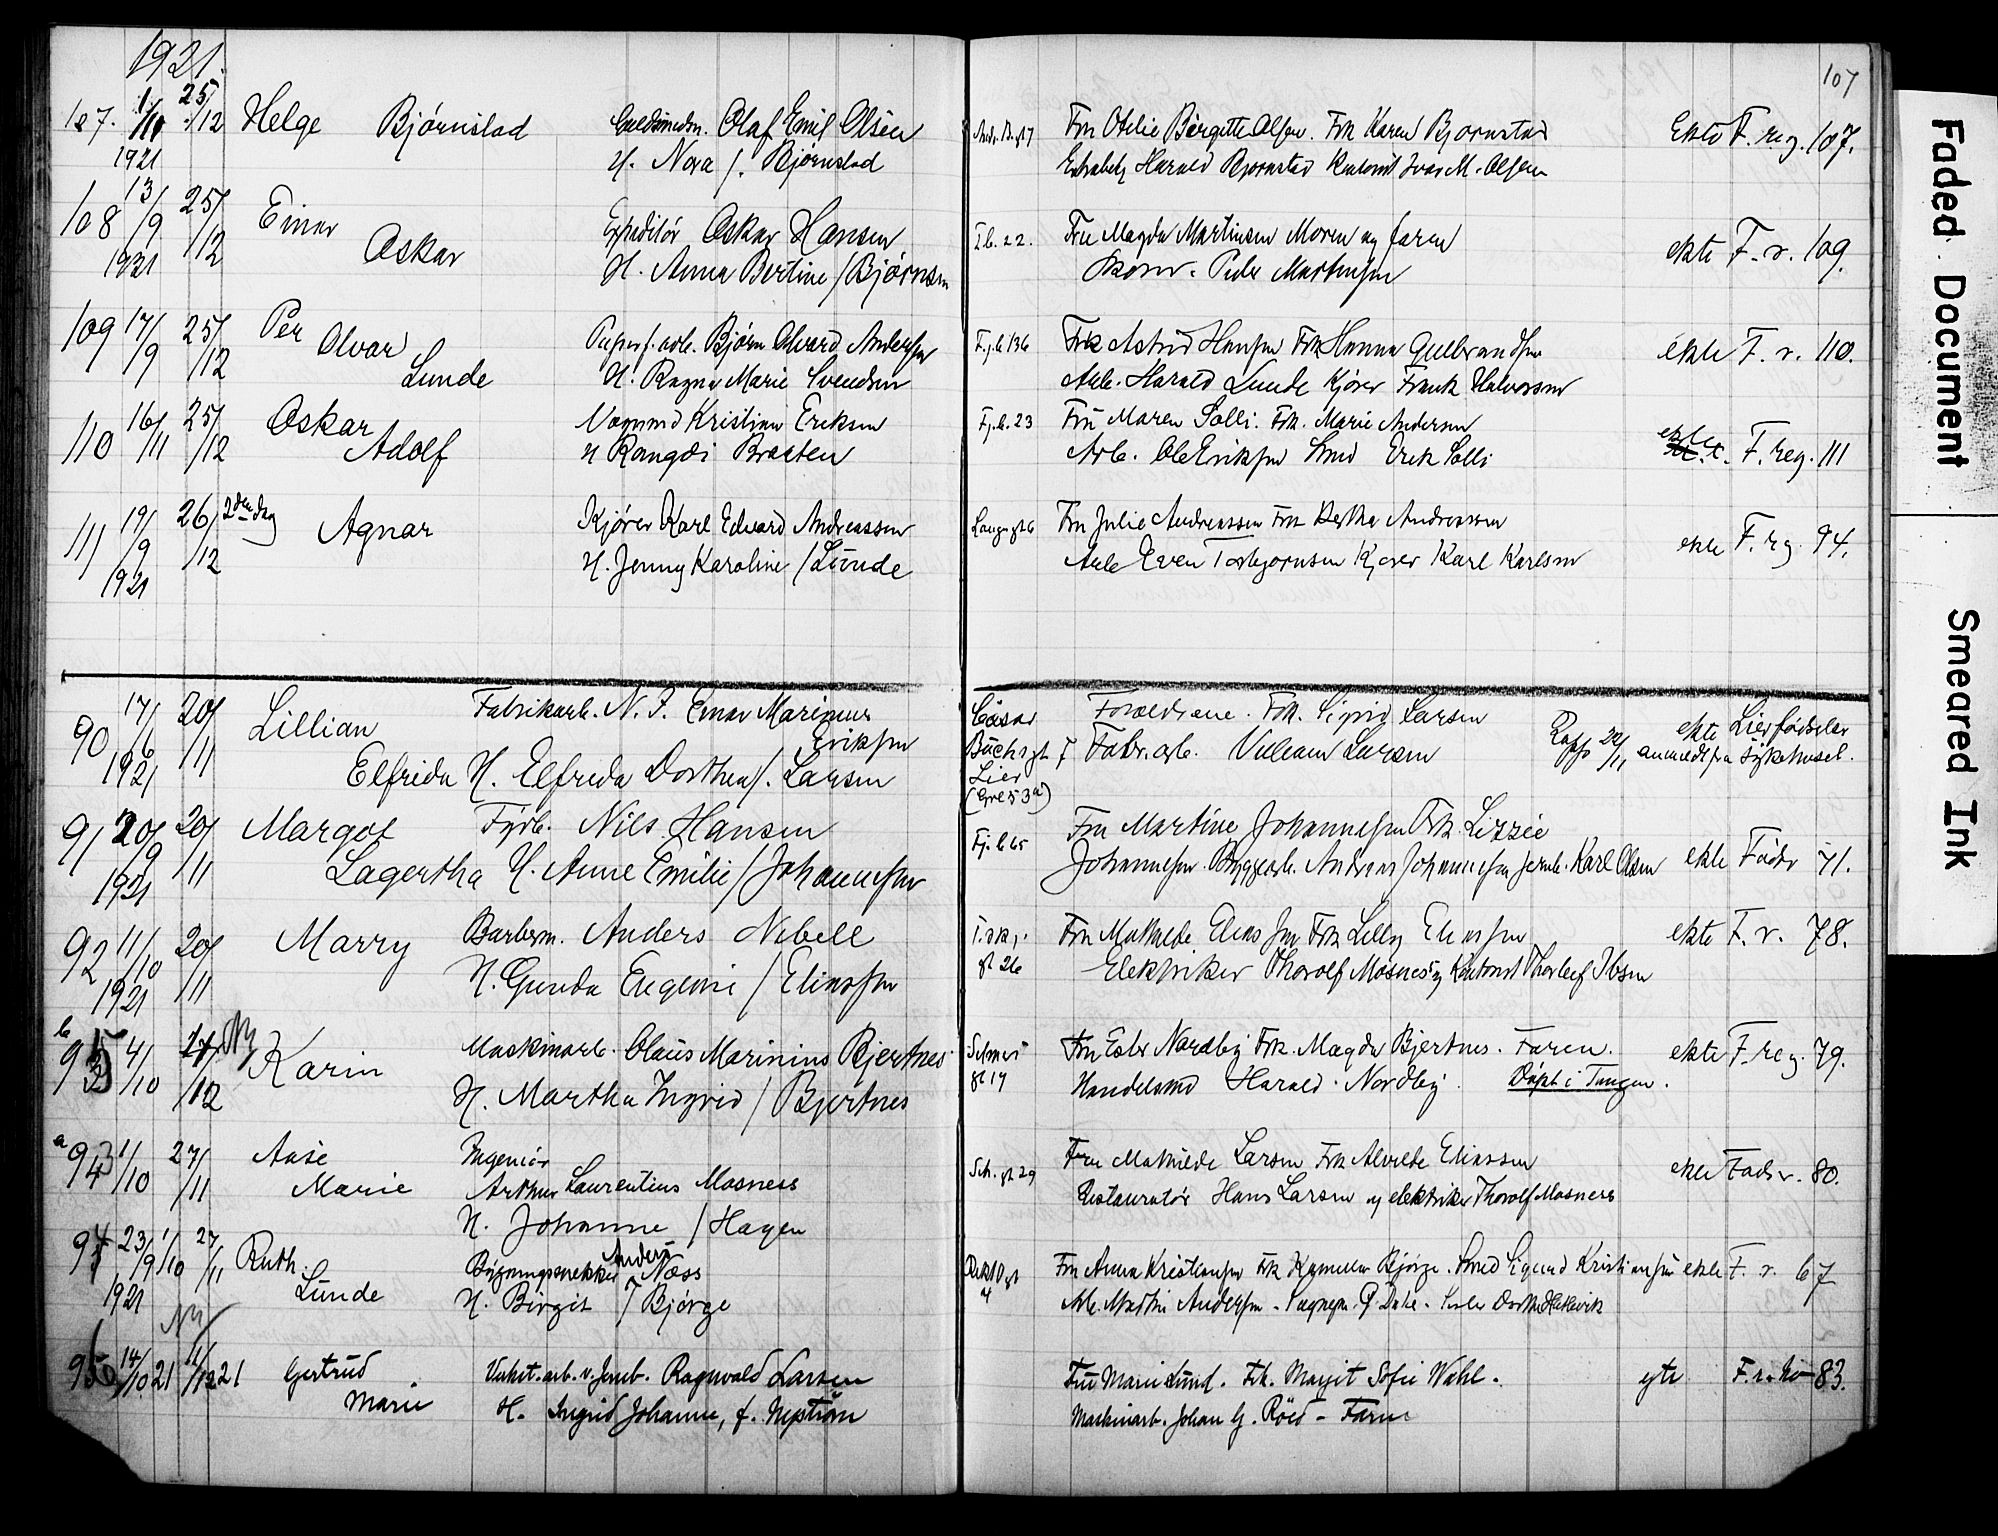 1921.
107
107. 1/10 25/12 Helge Bjørnstad Guldsmedm. Olaf Emil Olsen Fru Otelie Birgitte Olsen. Frk Karen Bjørnstad Ekte F. reg. 107.
1921 H. Nora f. Bjørnstad Harald Bjørnstad Kontorist Ivar M. Olsen
108 13/9 25/12 Einar Expeditør Oskar Hansen T.b. 22. Fru Magda Martinsen Moren og faren ekte F. r. 109.
1921 Oskar H. Anna Bertine / Bjørnsen Peder Martinsen
109 17/9 25/12 Per Papirf. arb. Bjørn Alvard Andersen F.j.b 136 Frk Astrid Hansen Frk Hanna Gulbrandsen ekte F. r. 110.
Olvar Lunde H. Ragna Marie Svendsen Arb. Harald Lunde Kjører Frank Halvorsen
110 16/11 25/12 Oskar Vognmd Kristian Eriksen Fj.b. 23 Fru Maren Solli. Frk. Marie Andersen ekte F. reg. 111
Adolf H Rangdi Bråten Arb. Ole Eriksen Smed Erik Solli
111 19/9 26/12 2den dag Agnar Kjører Karl Edvard Andreassen Langesgt 6 Fru Julie Andreassen Frk Hertha Andreassen ekte F. reg. 94.
1921 H. Jenny Karoline / Lunde Arb Even Torbjørnsen Kjører Karl Karlsen
90 17/6 20/11 Lillian Fabrikarb. N. J. Einar Marinius Eriksen Cæsar Forældrene. Frk. Sigrid Larsen Rapp 22/11 ekte Lierfødsler
1921 Elfrida H. Elfrida Dorthea f. Larsen Büchsgt 7 Lier Fabr. arb. William Larsen anmeldt fra Sykehuset.
91 20/9 20/11 Margot Fyrb. Nils Hansen Fj. b 65 Fru Martine Johannesen Frk. Lizzie
1921 Lagertha H. Anne Emilie / Johannesen Johannesen. Bryggearb. Andreas Johannesen Jernb. Karl Olsen ekte Fødsr 71.
92 11/10 20/11 Marry Barberm. Anders Nebell Fru Mathilde Eliassen Frk Lilly Eliassen ekte F. r. 78.
1921 H. Gunda Eugenie / Eliassen gt 26 Elektriker Thorolf Mosness og Kontorist Thorleif Ibsen
b 93 4/10 17/12 Ny Karin Maskinarb. Olaus Marinius Bjertnes Selmersgt 14 Fru Ester Nordby Frk. Magda Bjertnes. Faren. ekte F. reg. 79.
H. Martha Ingrid / Bjertnes Handelsmd Harald Nordby. Døpt i Tangen.
a 93 1/10 27/11 Aase Ingeniør Sch. gt 29 Fru Mathilde Larsen Frk Alvilde Eliassen ekte Fødsr. 80.
Marie Arthur Laurentius Mosness Restauratør Hans Larsen og elektriker Thorolf Mosness
H. Johanne / Hagen
94 23/9 1/10 27/11 Ruth Bygningssnekker Anders Næss Fru Anna Kristiansen Frk Bjørge. Smed Sigurd Kristiansen ekte F. r. 67
1921 Lunde H. Birgit f Bjørge Arb. Martin Andersen
Ny
95 14/10 21 11/12 21 Gertrud Vakst. arb. v. Jernb. Ragnvald Larsen Fru Marie Lund. Frk. Margit Sofie Wahl. gte F. r. No 83.
Marie H. Ingrid Johanne, f. Nystrøm Maskinarb. Johan G. Röed - Faren
Faded Document
Smeared Ink